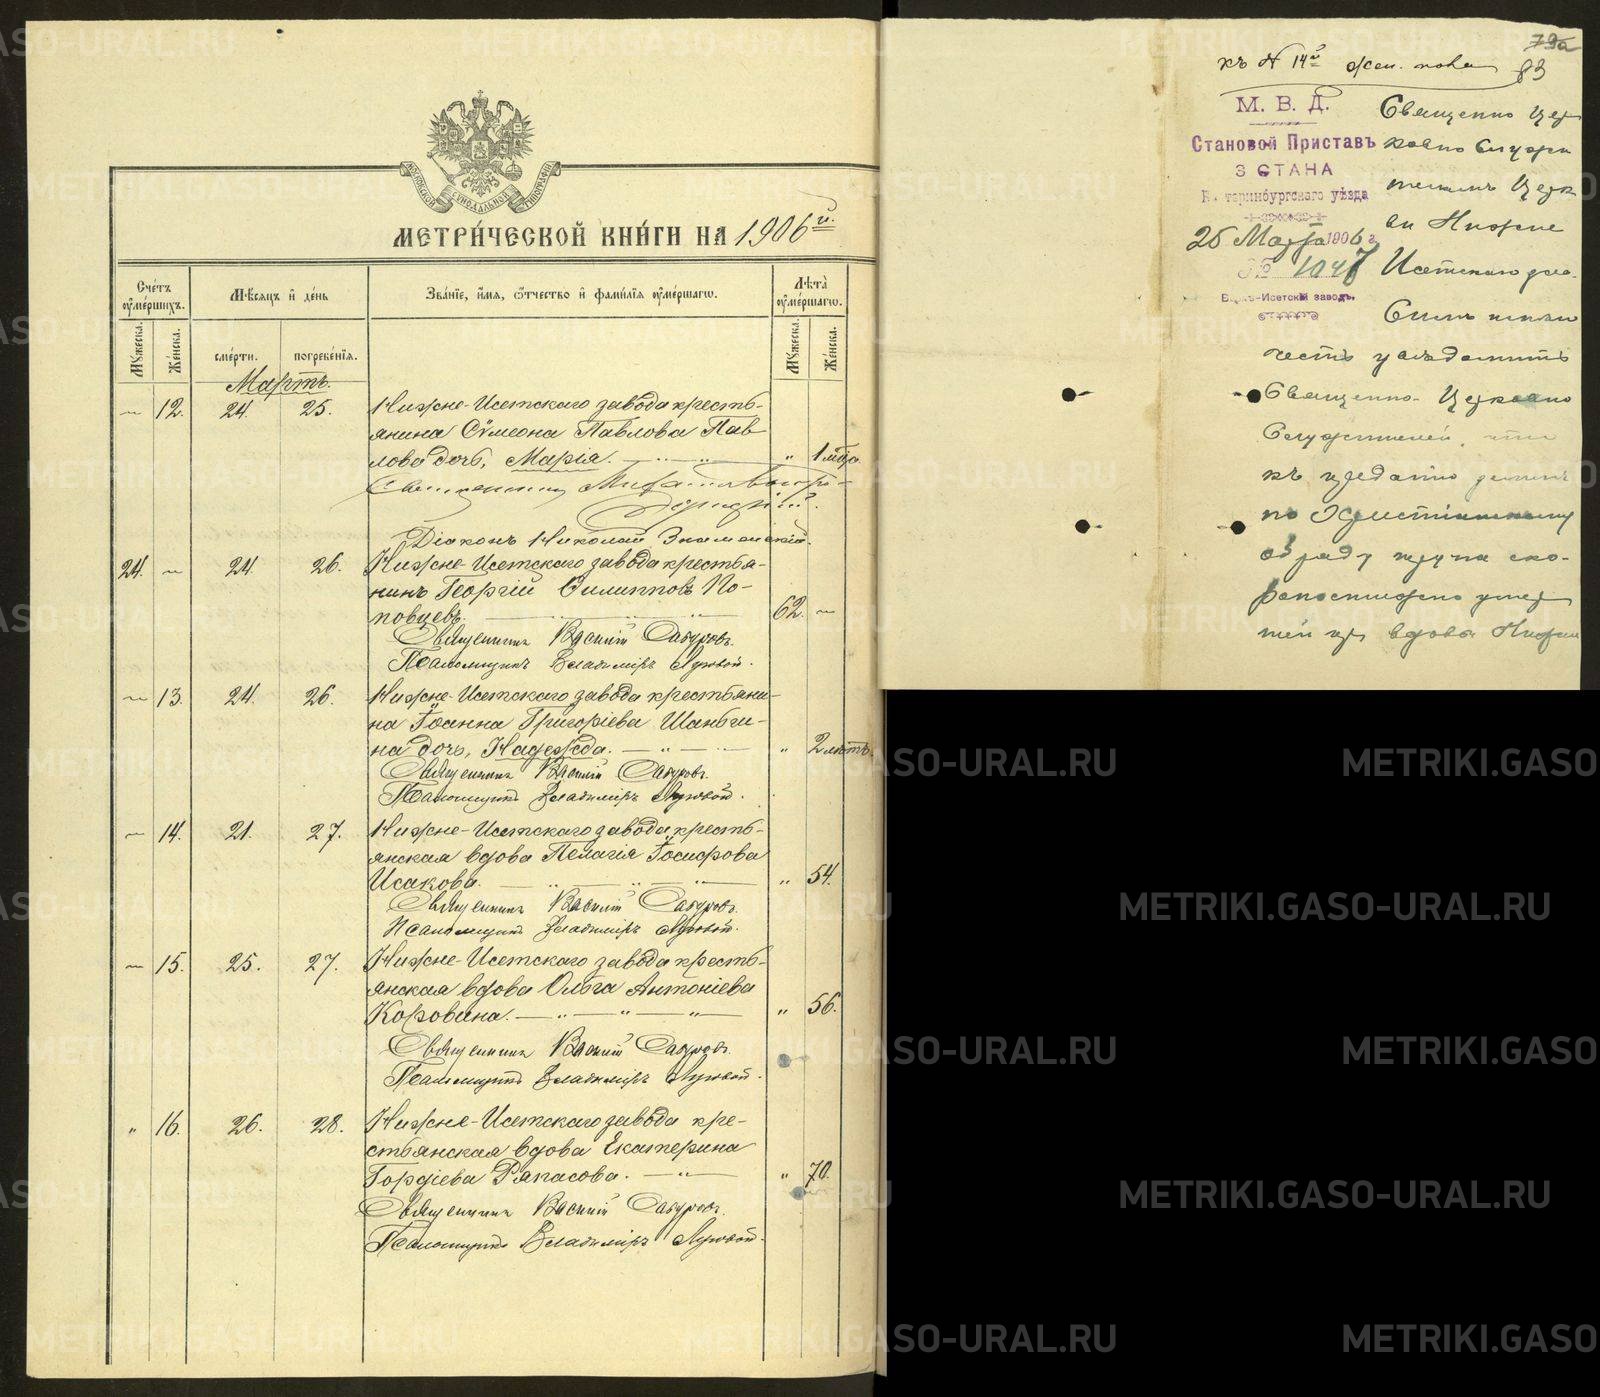 МОСКОВСКОЙ СѴНОДАЛЬНОЙ ТИПОГРАФІИ
МЕТРИ́ЧЕСКОЙ КНИ́ГИ НА 1906й.
Сче́тъ ᲂу҆ме́ршихъ.
Мꙋ́жеска.
Же́нска.
Мѣ́сѧцъ и҆ де́нь
сме́рти.
погребе́нїѧ.
Зва́нїе, и҆́мѧ, ѻ҆́тчество и҆ фами́лїѧ ᲂу҆ме́ршагѡ.
Лѣ́та ᲂу҆ме́ршагѡ.
Мꙋ́жеска.
Же́нска.
Мартъ.
— 12. 24. 25. Нижне-Исетскаго завода кресть-
янина Сѵмеона Павлова Пав
лова дочь, Марія. — „ — „ 1 мѣс.
Священникъ
Діаконъ Николай Знаменскій.
24. — 24. 26. Нижне-Исетскаго завода крестья-
нинъ Георгій Филипповъ По-
повцевъ. — „ — 62. —
Священникъ Василій Сабуровъ.
Псаломщикъ Владиміръ Луговой.
— 13. 24. 26. Нижне-Исетскаго завода крестьяни-
на Іоанна Григоріева Шаньги-
на дочь, Надежда. — „ — „ 2 лѣтъ.
Священникъ Василій Сабуровъ.
Псаломщикъ Владиміръ Луговой.
— 14. 21. 27. Нижне-Исетскаго завода кресть-
янская вдова Пелагія Іосифова
Исакова. — „ — „ — „ — „ 54.
Священникъ Василій Сабуровъ.
Псаломщикъ Владиміръ Луговой.
— 15. 25. 27. Нижне-Исетскаго завода кресть-
янская вдова Ольга Антоніева
Коровина. — „ — „ — „ — „ 56.
Священникъ Василій Сабуровъ.
Псаломщикъ Владиміръ Луговой.
„ 16. 26. 28. Нижне-Исетскаго завода кре-
стьянская вдова Екатерина
Гордіева Ряпасова. — „ — „ 70.
Священникъ Василій Сабуровъ.
Псаломщикъ Владиміръ Луговой.
79а
къ № 14й жен. пола 83
М. В. Д.
Становой Приставъ
3 СТАНА
Екатеринбургского уѣзда
25 Марта 1906 г.
№ 1047
Верхъ-Исетскій заводъ.
Священно Цер
ковно Служи
телямъ Церк
ви Нижне
Исетскаго зав.
Симъ имѣю
честь увѣдомить
Священно-Церковно
Служителей, что
къ преданію землѣ
по Христіанскому
обряду трупа ско-
ропостижно умер
шей кр. вдовы Нижне
METRIKI.GASO-URAL.RU